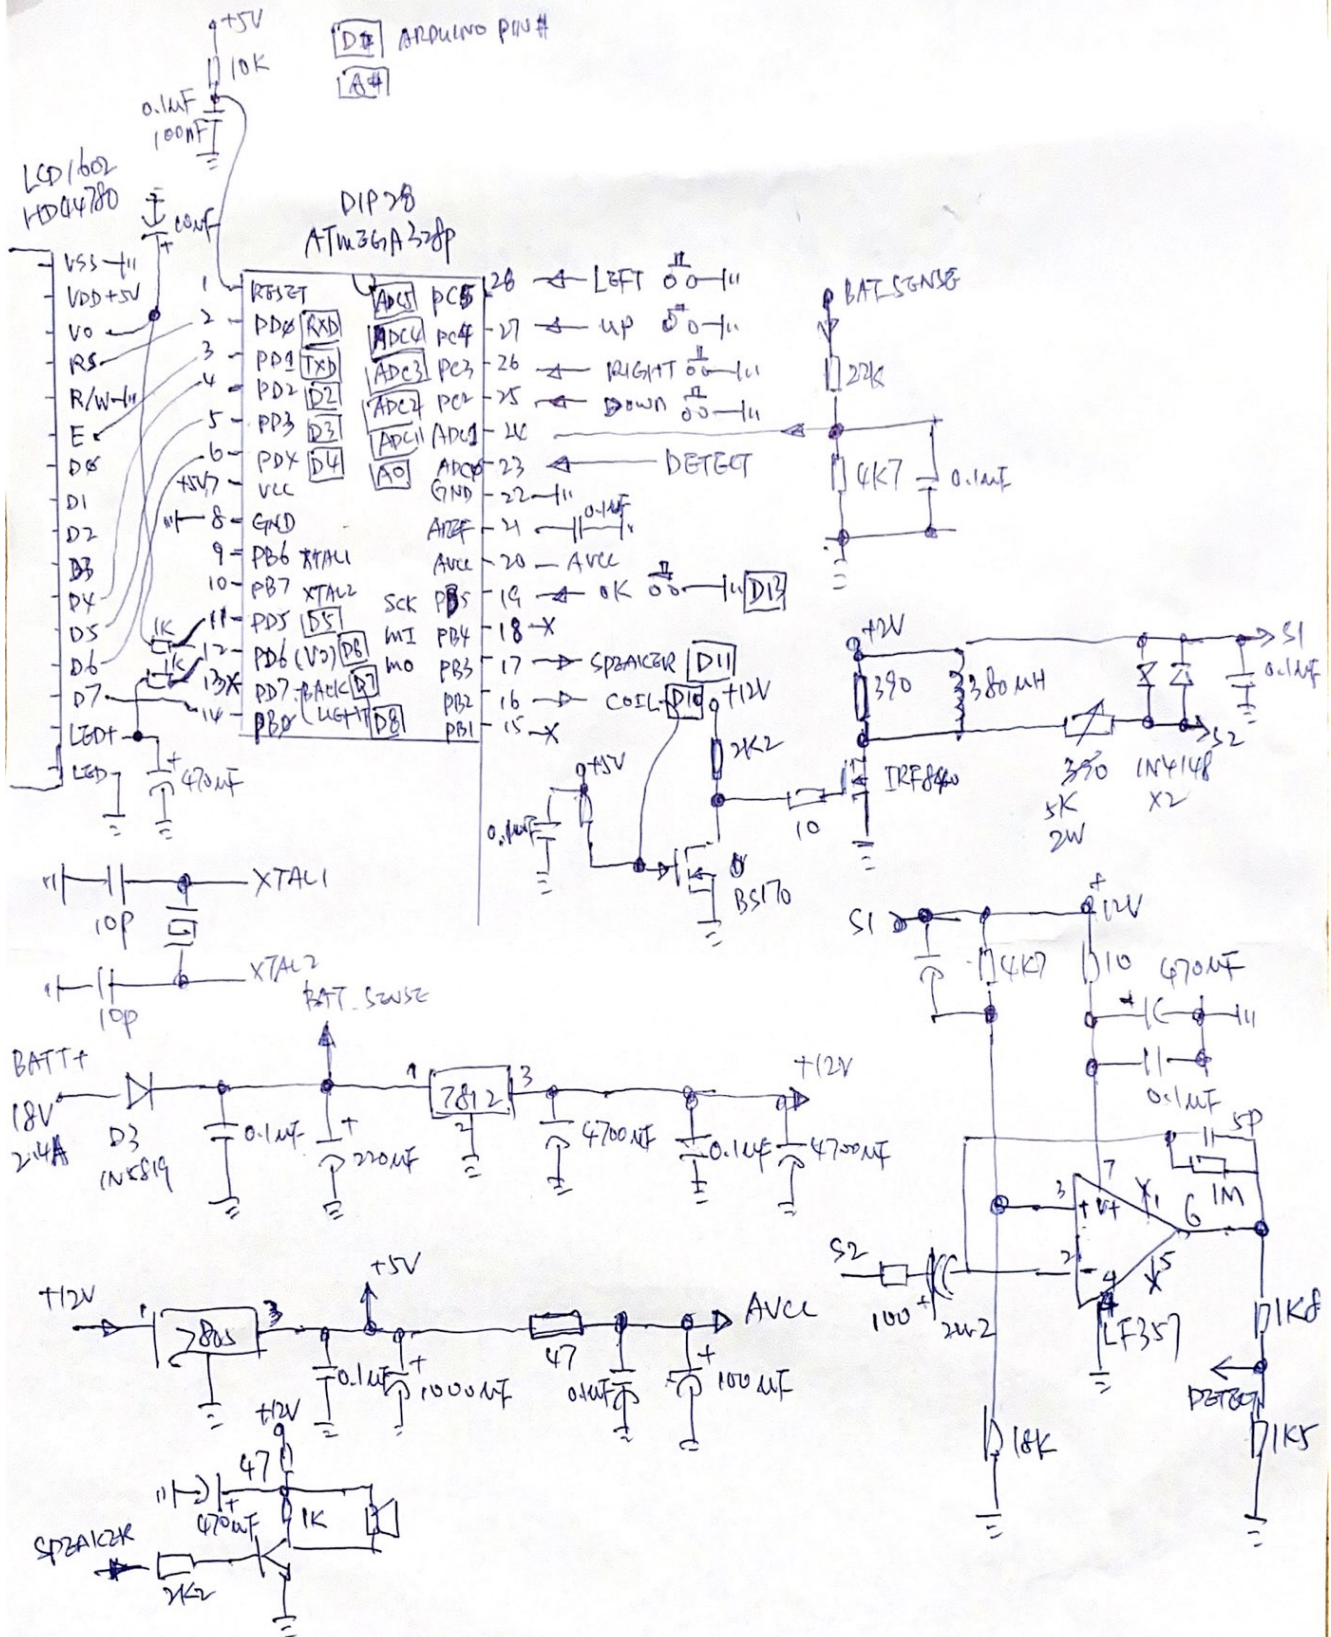 +5V
D# ARDUINO PIN#
A#
10K
0.1uF
100nF
LCD1602
HD44780
DIP28
ATMEGA328P
VSS
VDD +5V
V0
RS
R/W
E
D0
D1
D2
D3
D4
D5
D6
D7
LED+
LED-
470uF
1K
1K
1 RESET
2 PD0 RXD
3 PD1 TXD
4 PD2 D2
5 PD3 D3
6 PD4 D4
+5V 7 VCC
8 GND
9 PB6 XTAL1
10 PB7 XTAL2
11 PD5 D5
12 PD6 (V0) D6
13 PD7 BACK D7
14 PB0 LIGHT D8
ADC5 PC5 28 LEFT
ADC4 PC4 27 UP
ADC3 PC3 26 RIGHT
ADC2 PC2 25 DOWN
ADC1 ADC1 24
A0 ADC0 23 DETECT
GND 22
AREF 21 0.1uF
AVCC 20 AVCC
SCK PB5 19 OK D13
MI PB4 18 X
MO PB3 17 SPEAKER D11
PB2 16 COIL D10
PB1 15 X
BAT_SENSE
22K
4K7
0.1uF
+12V
2K2
+5V
0.1uF
BS170
10
+12V
390
380uH
IRF840
390
5K
2W
1N4148
X2
S1
0.1uF
S2
10P
XTAL1
10P
XTAL2
BATT+
18V
2.4A
D3
1N5819
0.1uF
BAT_SENSE
220uF
1 7812 3
2
4700uF
0.1uF
4700uF
+12V
+12V
1 7805 3
+5V
0.1uF
1000uF
47
0.1uF
100uF
AVCC
+12V
47
470uF
1K
SPEAKER
2K2
S1
4K7
+12V
10
470uF
0.1uF
5P
1M
3 + V+ 7
2 - 4
6
5
LF357
S2
100
2u2
18K
1K8
DETECT
1K5